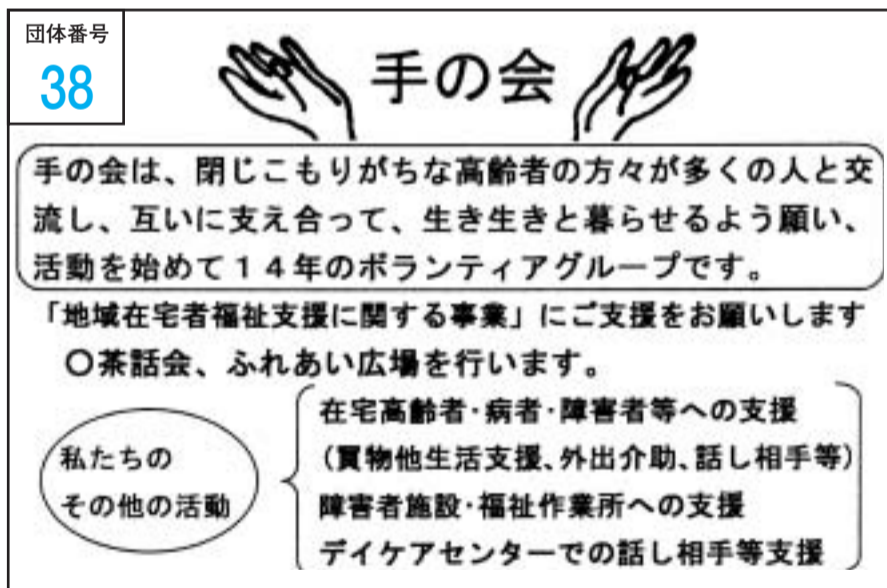 団体番号
38
手の会
手の会は、閉じこもりがちな高齢者の方々が多くの人と交
流し、互いに支え合って、生き生きと暮らせるよう願い、
活動を始めて１４年のボランティアグループです。
「地域在宅者福祉支援に関する事業」にご支援をお願いします
〇茶話会、ふれあい広場を行います。
私たちの
その他の活動
在宅高齢者・病者・障害者等への支援
（買物他生活支援、外出介助、話し相手等）
障害者施設・福祉作業所への支援
デイケアセンターでの話し相手等支援